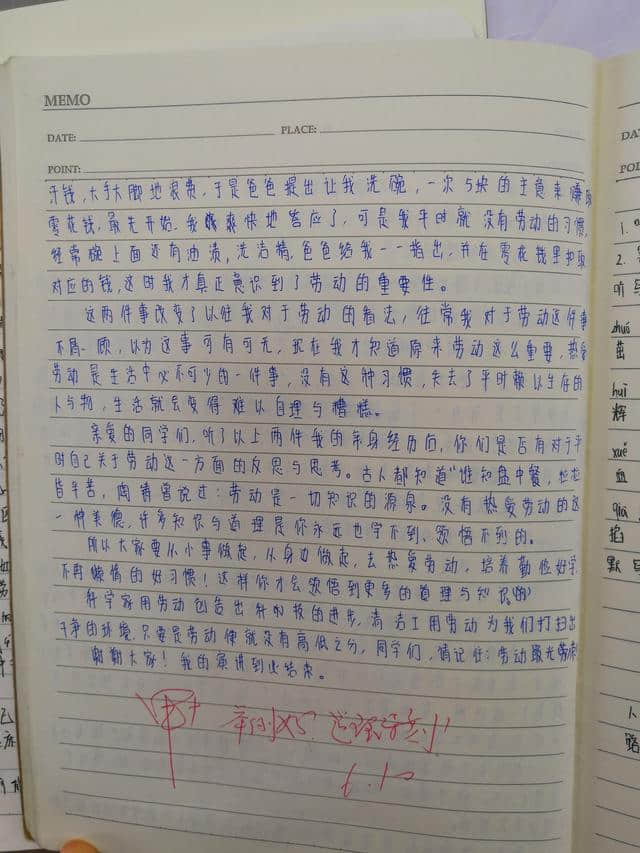 MEMO
DATE: PLACE:
POINT:
牙钱,大手大脚地浪费,于是爸爸提出让我洗碗,一次5块的主意来赚取
零花钱,最先开始,我爽快地答应了,可是我平时就没有劳动的习惯,
经常碗上面还有油渍,洗洁精,爸爸给我一一指出,并在零花钱里扣取
对应的钱,这时我才真正意识到了劳动的重要性。
这两件事改变了以往我对于劳动的看法,往常我对于劳动这件事
不屑一顾,以为这事可有可无,现在我才知道原来劳动这么重要,热爱
劳动是生活中必不可少的一件事,没有这种习惯,失去了平时赖以生存的
人与物,生活就会变得难以自理与糟糕。
亲爱的同学们,听了以上两件我的亲身经历后,你们是否有对于平
时自己关于劳动这一方面的反思与思考。古人都知道“谁知盘中餐,粒粒
皆辛苦,陶青曾说过:劳动是一切知识的源泉。没有热爱劳动的这
一种美德,许多知识与道理是你永远也学不到、领悟不到的。
所以大家要从小事做起,从身边做起,去热爱劳动,培养勤俭好学
不再懒惰的好习惯!这样你才会领悟到更多的道理与知识哟
科学家用劳动创造出科技的进步,清洁工用劳动为我们打扫出
干净的环境,只要是劳动使就没有高低之分,同学们,请记住:劳动最光荣
谢谢大家!我的演讲到此结束。
6.10
DA
POI
1.
2.
听写
zhuó
茁
huī
辉
xuè
血
qiā
掐
默写
人